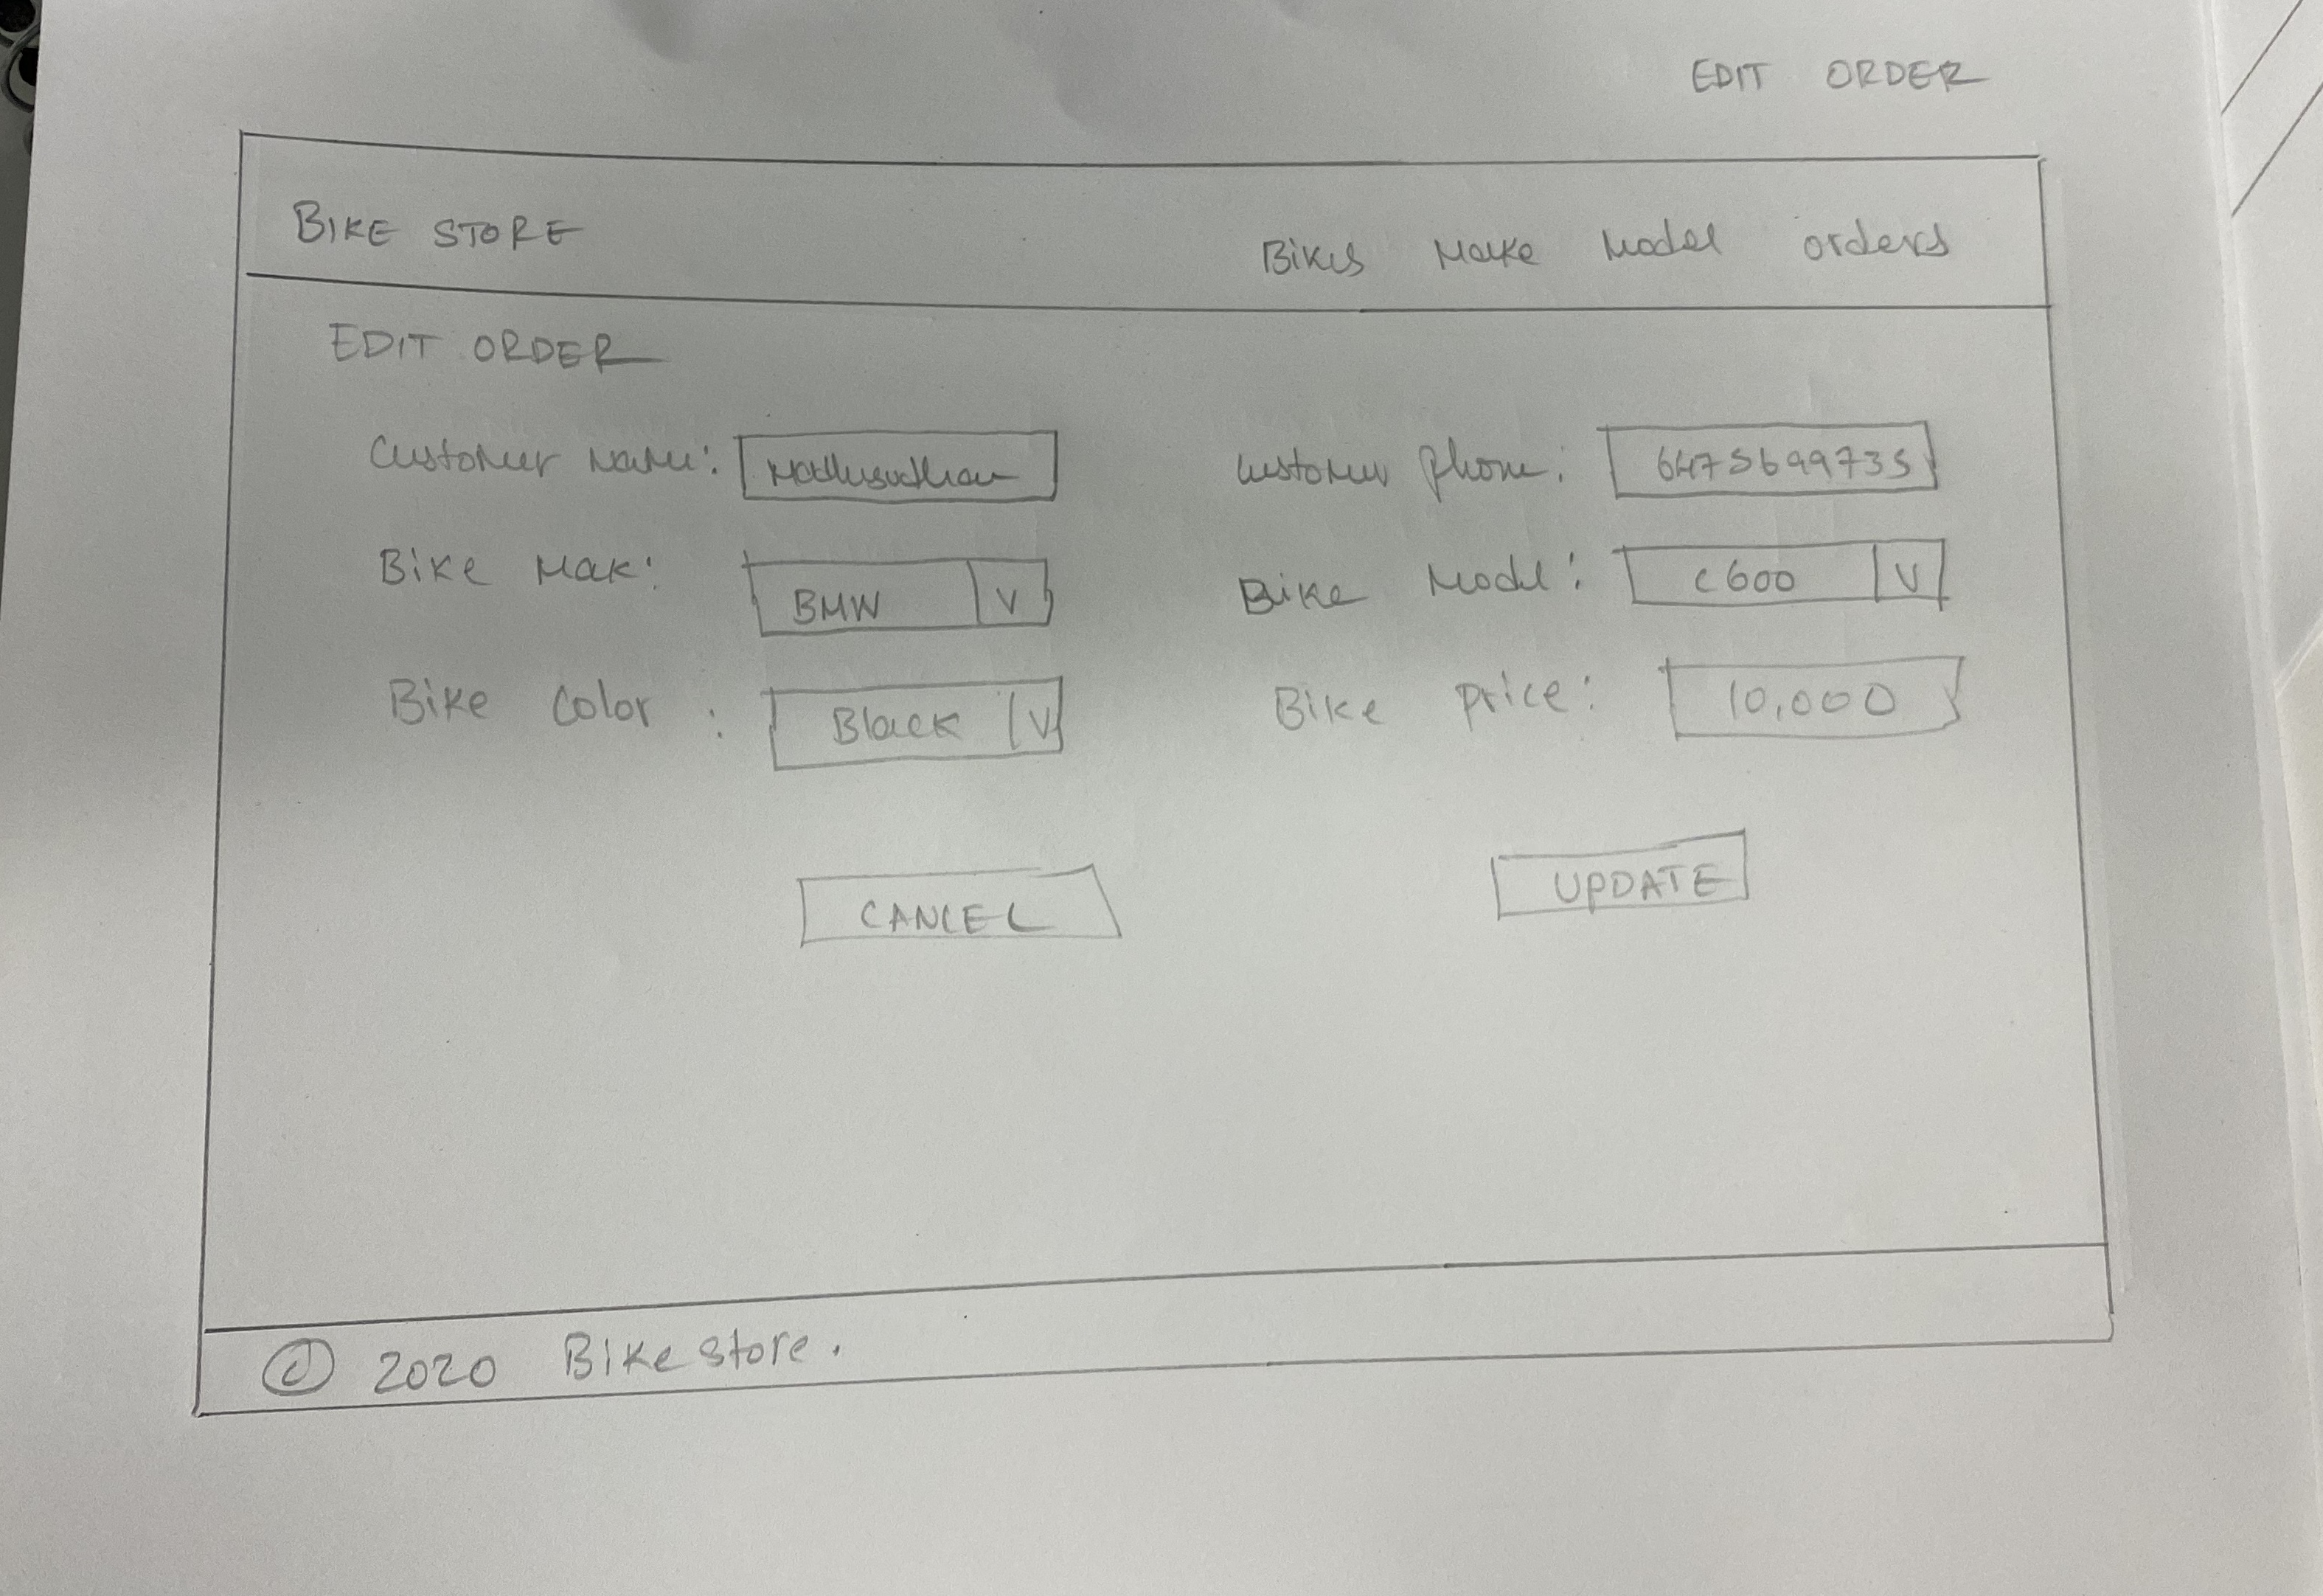 EDIT ORDER
BIKE STORE Bikes Make Model orders
EDIT ORDER
Customer name: Madhusudhan Customer phone: 6475699735
Bike Mak: BMW V Bike Model: C600 V
Bike Color : Black V Bike price: 10,000
CANCEL UPDATE
© 2020 Bike store.